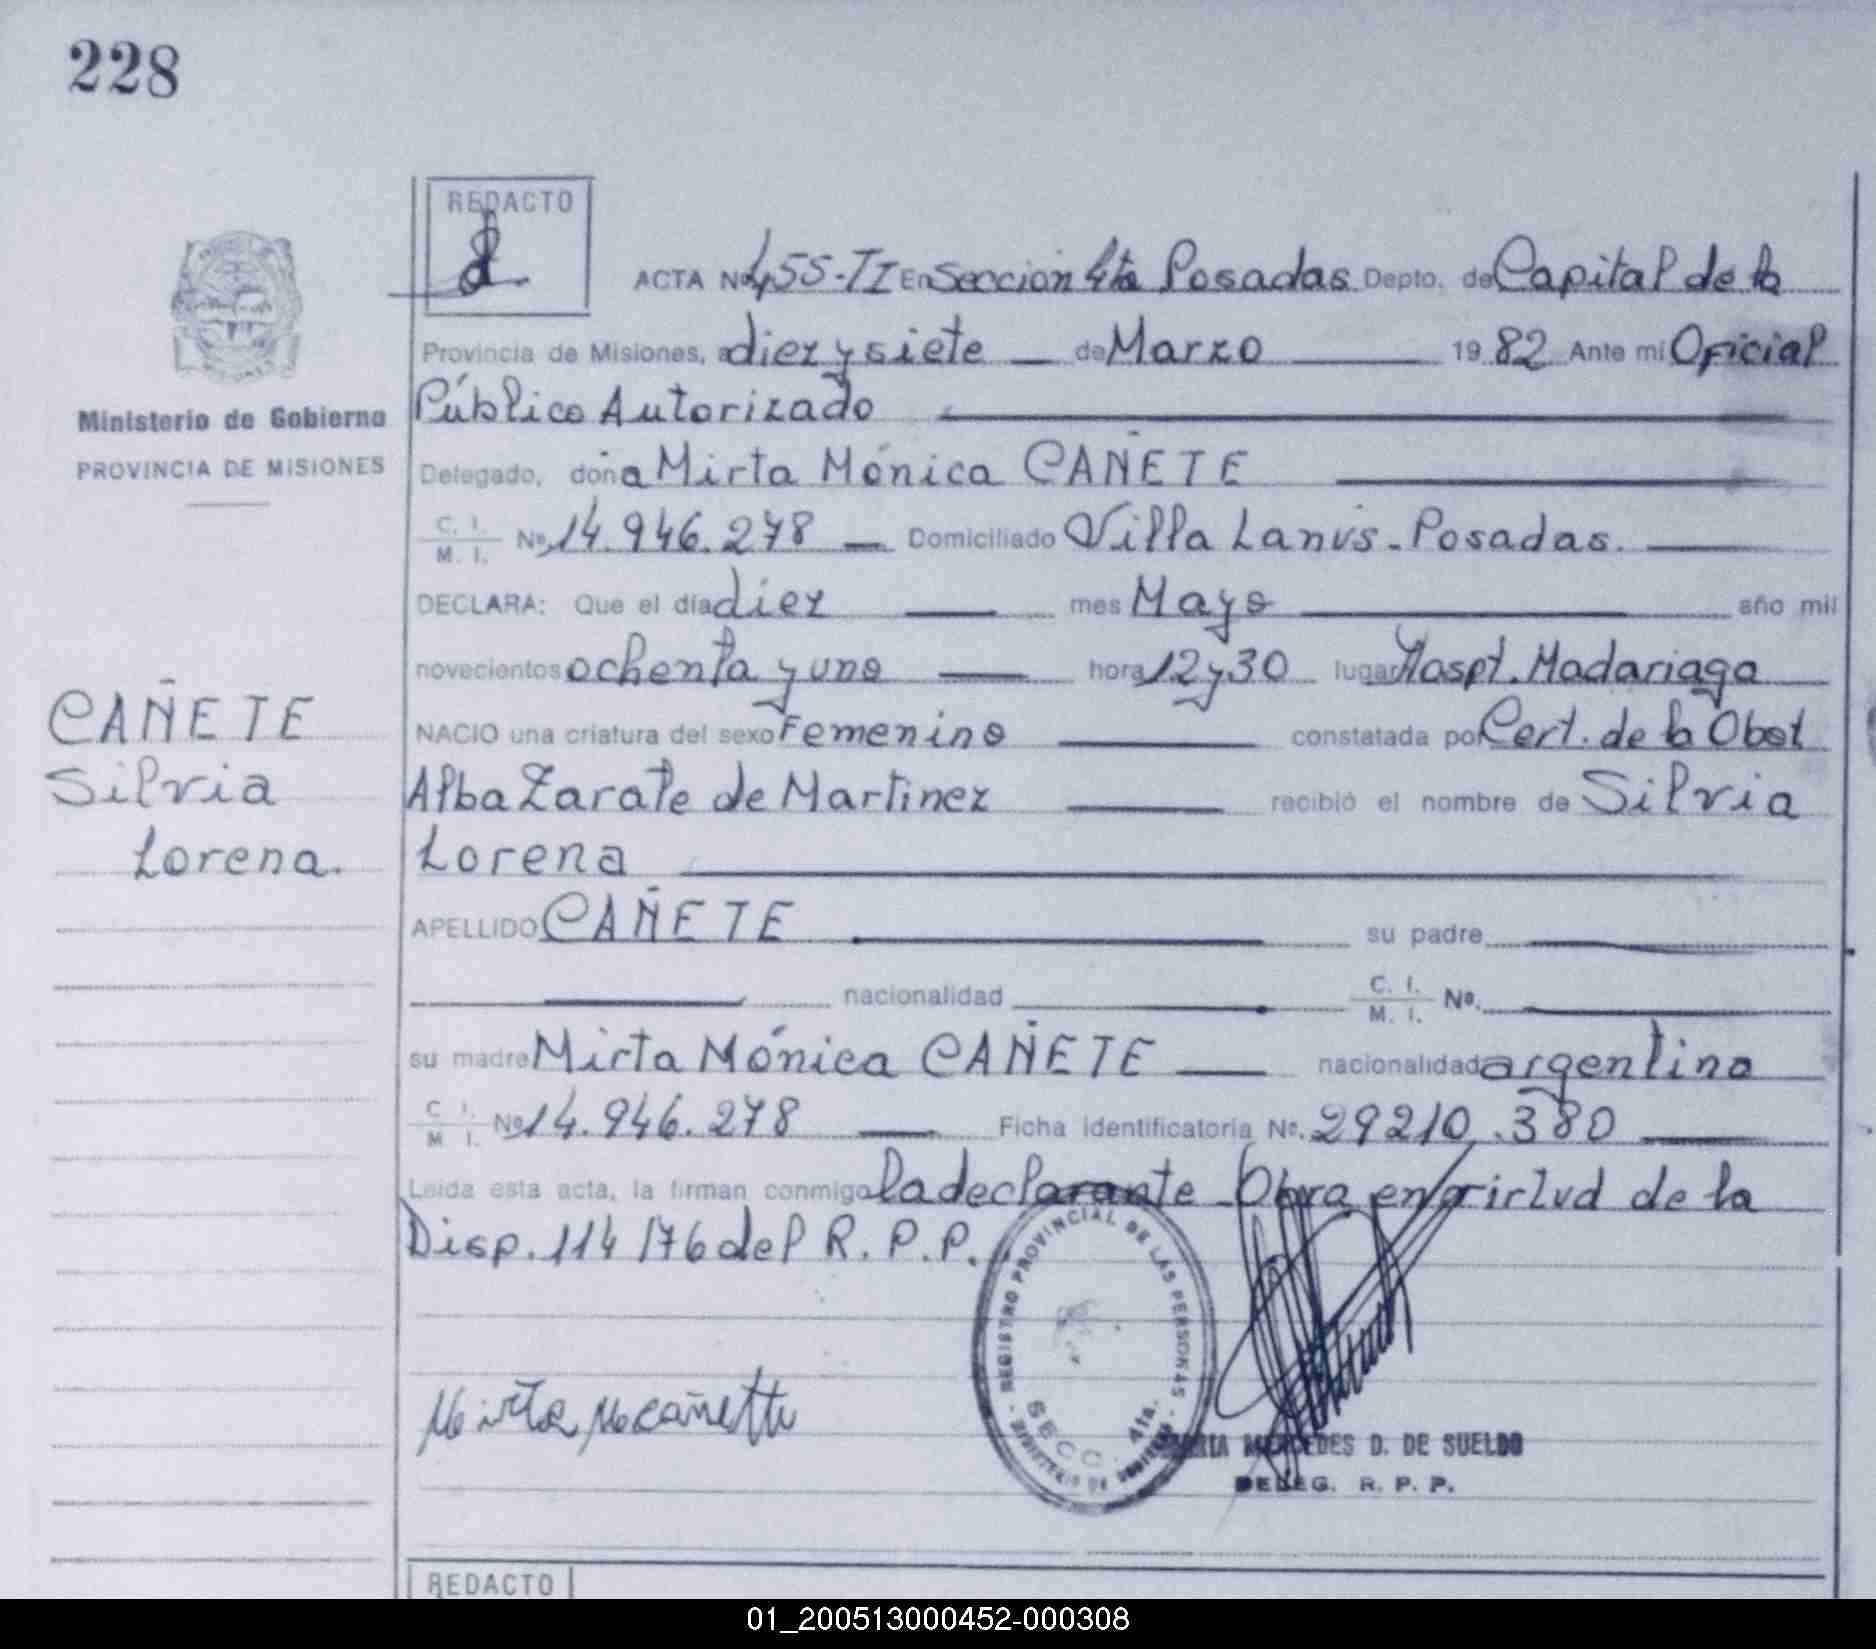 228
REDACTO
ACTA Nº 455-II En Sección 4ta Posadas Depto. de Capital de la
Provincia de Misiones, a diez y siete de Marzo 1982 Ante mi Oficial
Público Autorizado
Ministerio de Gobierno
PROVINCIA DE MISIONES
Delegado, doña Mirta Mónica CAÑETE
C. I. / M. I. Nº 14.946.278 Domiciliado Villa Lanús-Posadas.
DECLARA: Que el día diez mes Mayo año mil
novecientos ochenta y uno hora 12y30 lugar Hospt. Madariaga
NACIO una criatura del sexo Femenino constatada por Cert. de la Obst
Alba Zarate de Martinez recibió el nombre de Silvia
Lorena
CAÑETE
Silvia
Lorena.
APELLIDO CAÑETE su padre
nacionalidad C. I. / M. I. Nº.
su madre Mirta Mónica CAÑETE nacionalidad argentina
C. I. / M. I. Nº 14.946.278 Ficha identificatoria Nº. 29210.380
Leída esta acta, la firman conmigo la declarante - Obra en virtud de la
Disp. 114/76 del R.P.P.
REGISTRO PROVINCIAL DE LAS PERSONAS
SECC. 4ta.
MINISTERIO DE GOBIERNO
Mirta M Cañette
MARIA MERCEDES D. DE SUELDO
DELEG. R. P. P.
REDACTO
01_200513000452-000308